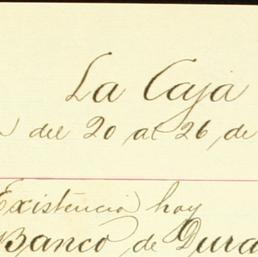 La Caja
del 20 al 26 de
Existencia hoy
Banco de Dura